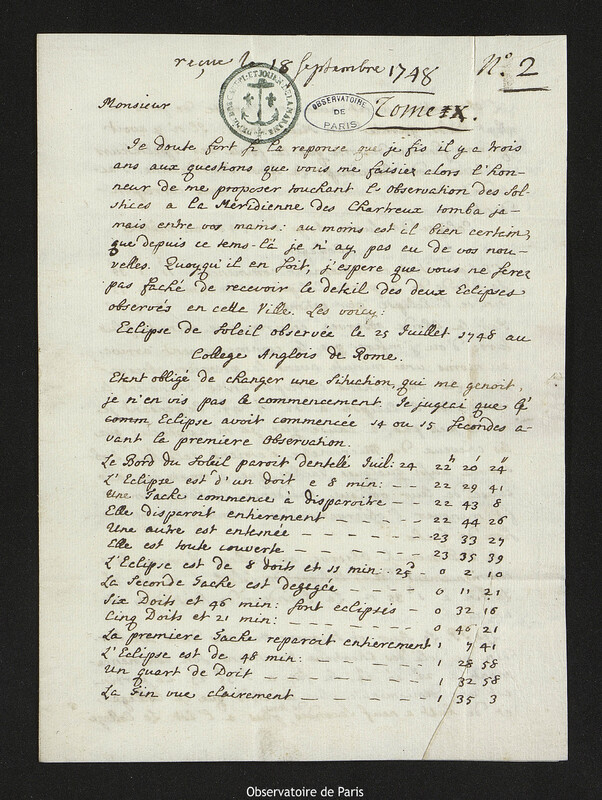 reçue le 18 Septembre 1748 N.° 2
OBSERVATOIRE DE PARIS
Tome IX.
Monsieur
Je doute fort si la reponse que je fis il y a trois
ans aux questions que vous me faisiez alors l'hon-
neur de me proposer touchant l'observation des Sol-
stices a la Méridienne des Chartreux tomba ja-
mais entre vos mains: au moins est il bien certain,
que depuis ce tems-là je n'ay pas eu de vos nou-
velles. Quoyqu'il en soit, j'espere que vous ne serez
pas faché de recevoir le detail des deux Eclipses
observés en cette Ville. Les voicy:
Eclipse de Soleil observée le 25 Juillet 1748 au
College Anglois de Rome.
Etent obligé de changer une situation, qui me genoit,
je n'en vis pas le commencement. Je jugeai que le
comm. Eclipse avoit commencée 14 ou 15 secondes a-
vant la premiere observation.
Le Bord du Soleil paroit dentelé Juil: 24 22h 20' 24"
L'Eclipse est d'un doit e 8 min: – – 22 29 41
Une Tache commence à disparoitre – – 22 43 8
Elle disparoit entierement – – – – 22 44 26
Une autre est entesnée – – – – – 23 33 27
Elle est toute couverte – – – – – 23 35 39
L'Eclipse est de 8 doits et 11 min: 25d – 0 2 10
La Seconde Tache est degegée – – – 0 11 21
Six Doits et 46 min: sont eclipsés – 0 32 16
Cinq Doits et 21 min: – – – – – 0 46 21
La premiere Tache reparoit entierement 1 7 41
L'Eclipse est de 48 min: – – – – 1 28 58
Un quart de Doit – – – – – – 1 32 58
La Fin vue clairement – – – – – 1 35 3
Observatoire de Paris